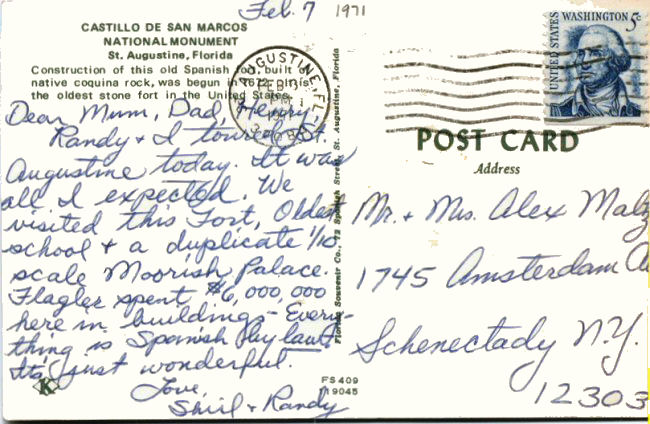 Feb. 7 1971
CASTILLO DE SAN MARCOS
NATIONAL MONUMENT
St. Augustine, Florida
Construction of this old Spanish fort, built of
native coquina rock, was begun in 1672. It is
the oldest stone fort in the United States.
Dear Mum, Dad, Henry,
Randy & I toured St.
Augustine today. It was
all I expected. We
visited this Fort, Oldest
school & a duplicate 1/10
scale Moorish Palace.
Flagler spent $6,000,000
here in buildings - Every-
thing is Spanish by law.
It's just wonderful.
Love,
Shirl & Randy
K
FS409
19045
Florida Souvenir Co., 72 Spanish Street, St. Augustine, Florida
AUGUSTINE, FL
PM
UNITED STATES
WASHINGTON 5c
POST CARD
Address
Mr. & Mrs. Alex
1745 Amsterdam A
Schenectady N.Y.
12303